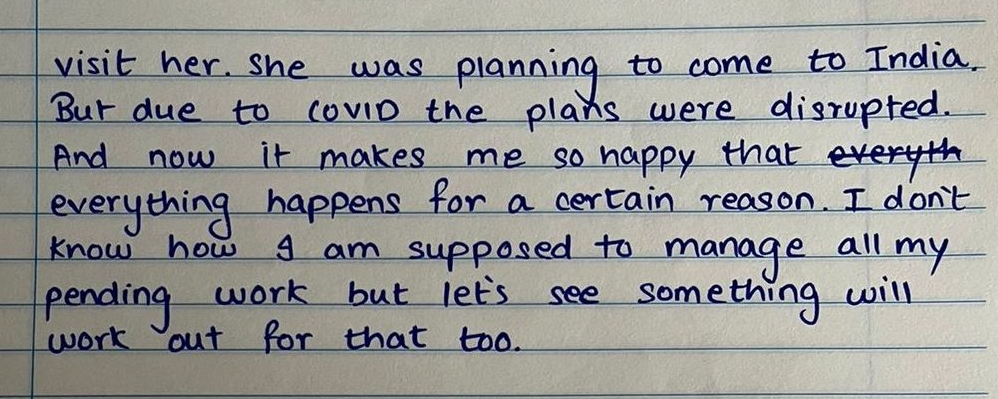 visit her. She was planning to come to India.
But due to COVID the plans were disrupted.
And now it makes me so happy that everyth
everything happens for a certain reason. I don't
know how I am supposed to manage all my
pending work but let's see something will
work out for that too.